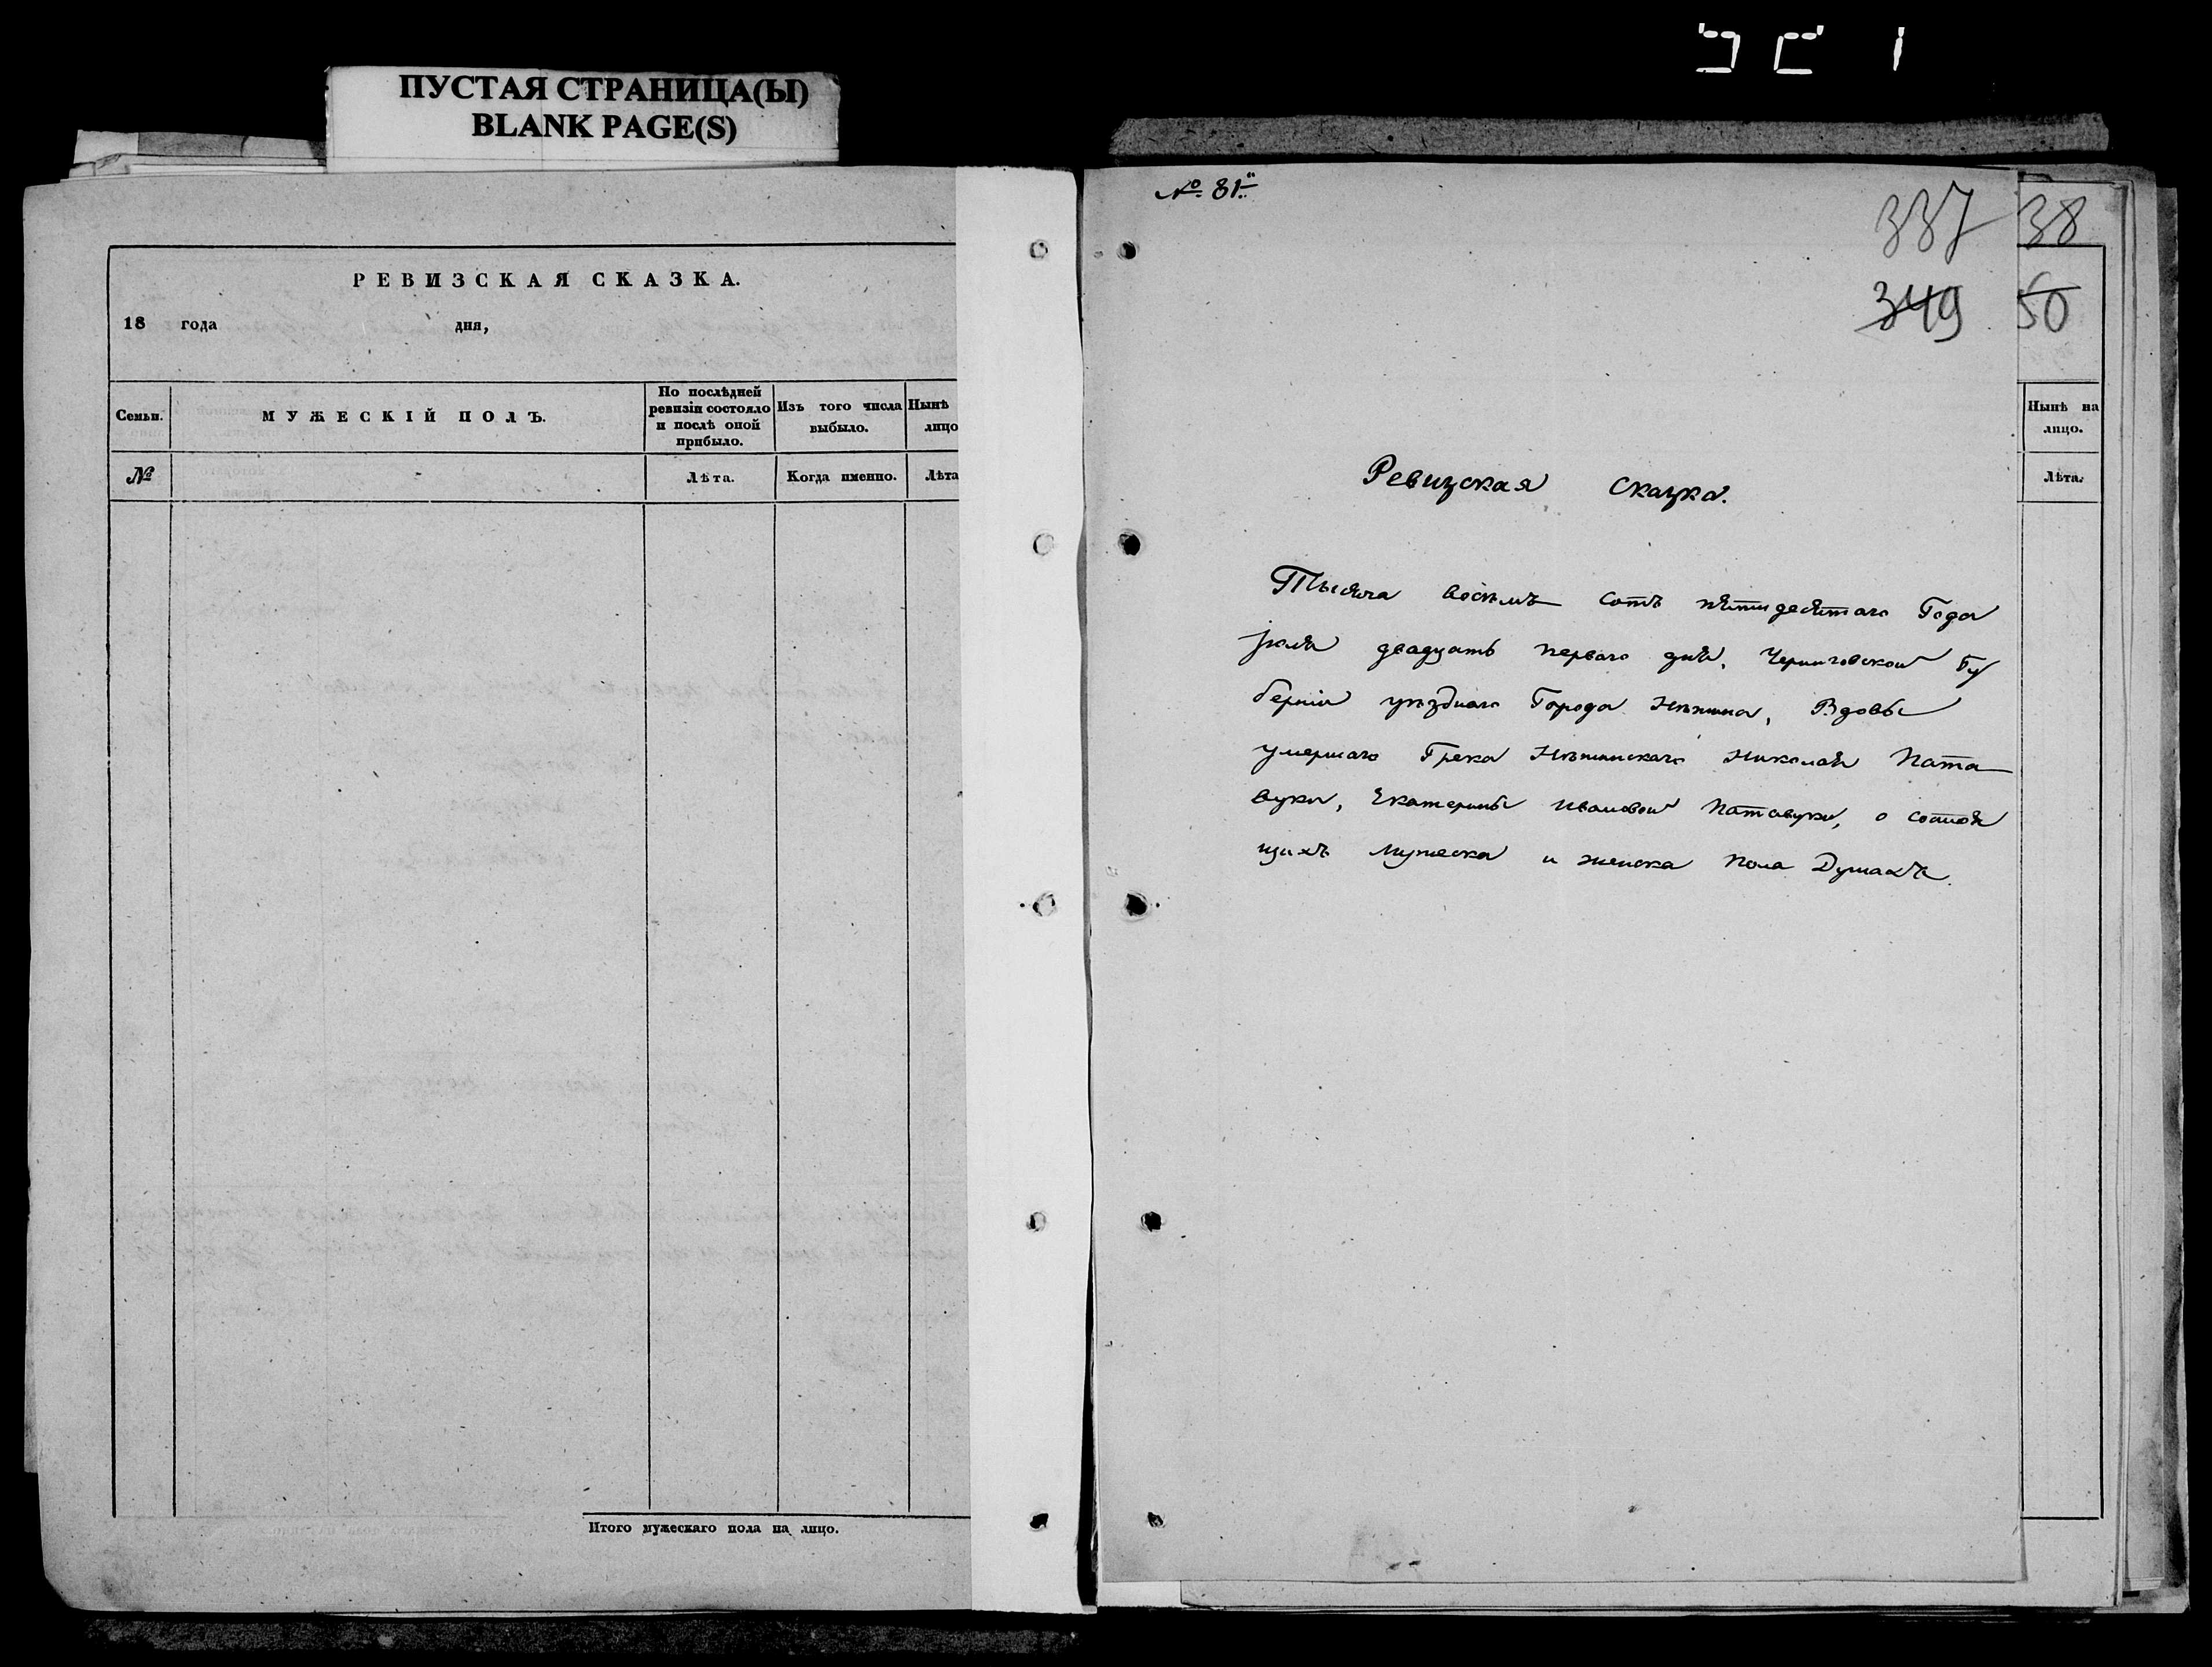 ПУСТАЯ СТРАНИЦА(Ы)
BLANK PAGE(S)
РЕВИЗСКАЯ СКАЗКА.
18 года дня,
Семьи.
МУЖЕСКІЙ ПОЛЪ.
По послѣдней
ревизіи состояло
и послѣ оной
прибыло.
Изъ того числа
выбыло.
Нынѣ
лицо
№
Лѣта.
Когда именно.
Лѣта
Итого мужескаго пола на лицо.
№ 81.
337
349
Ревизская Сказка.
Тысяча восемь сотъ пятидесятаго Года
Іюля двадцать перваго дня, Черниговской Гу
берніи уѣзднаго Города Нѣжина, Вдовы
умершаго Грека Нѣжинскаго Николая Пата
вуки, Екатерины Ивановой Патавуки, о состоя
щихъ мужеска и женска пола Душахъ.
38
50
Нынѣ на
лицо.
Лѣта.